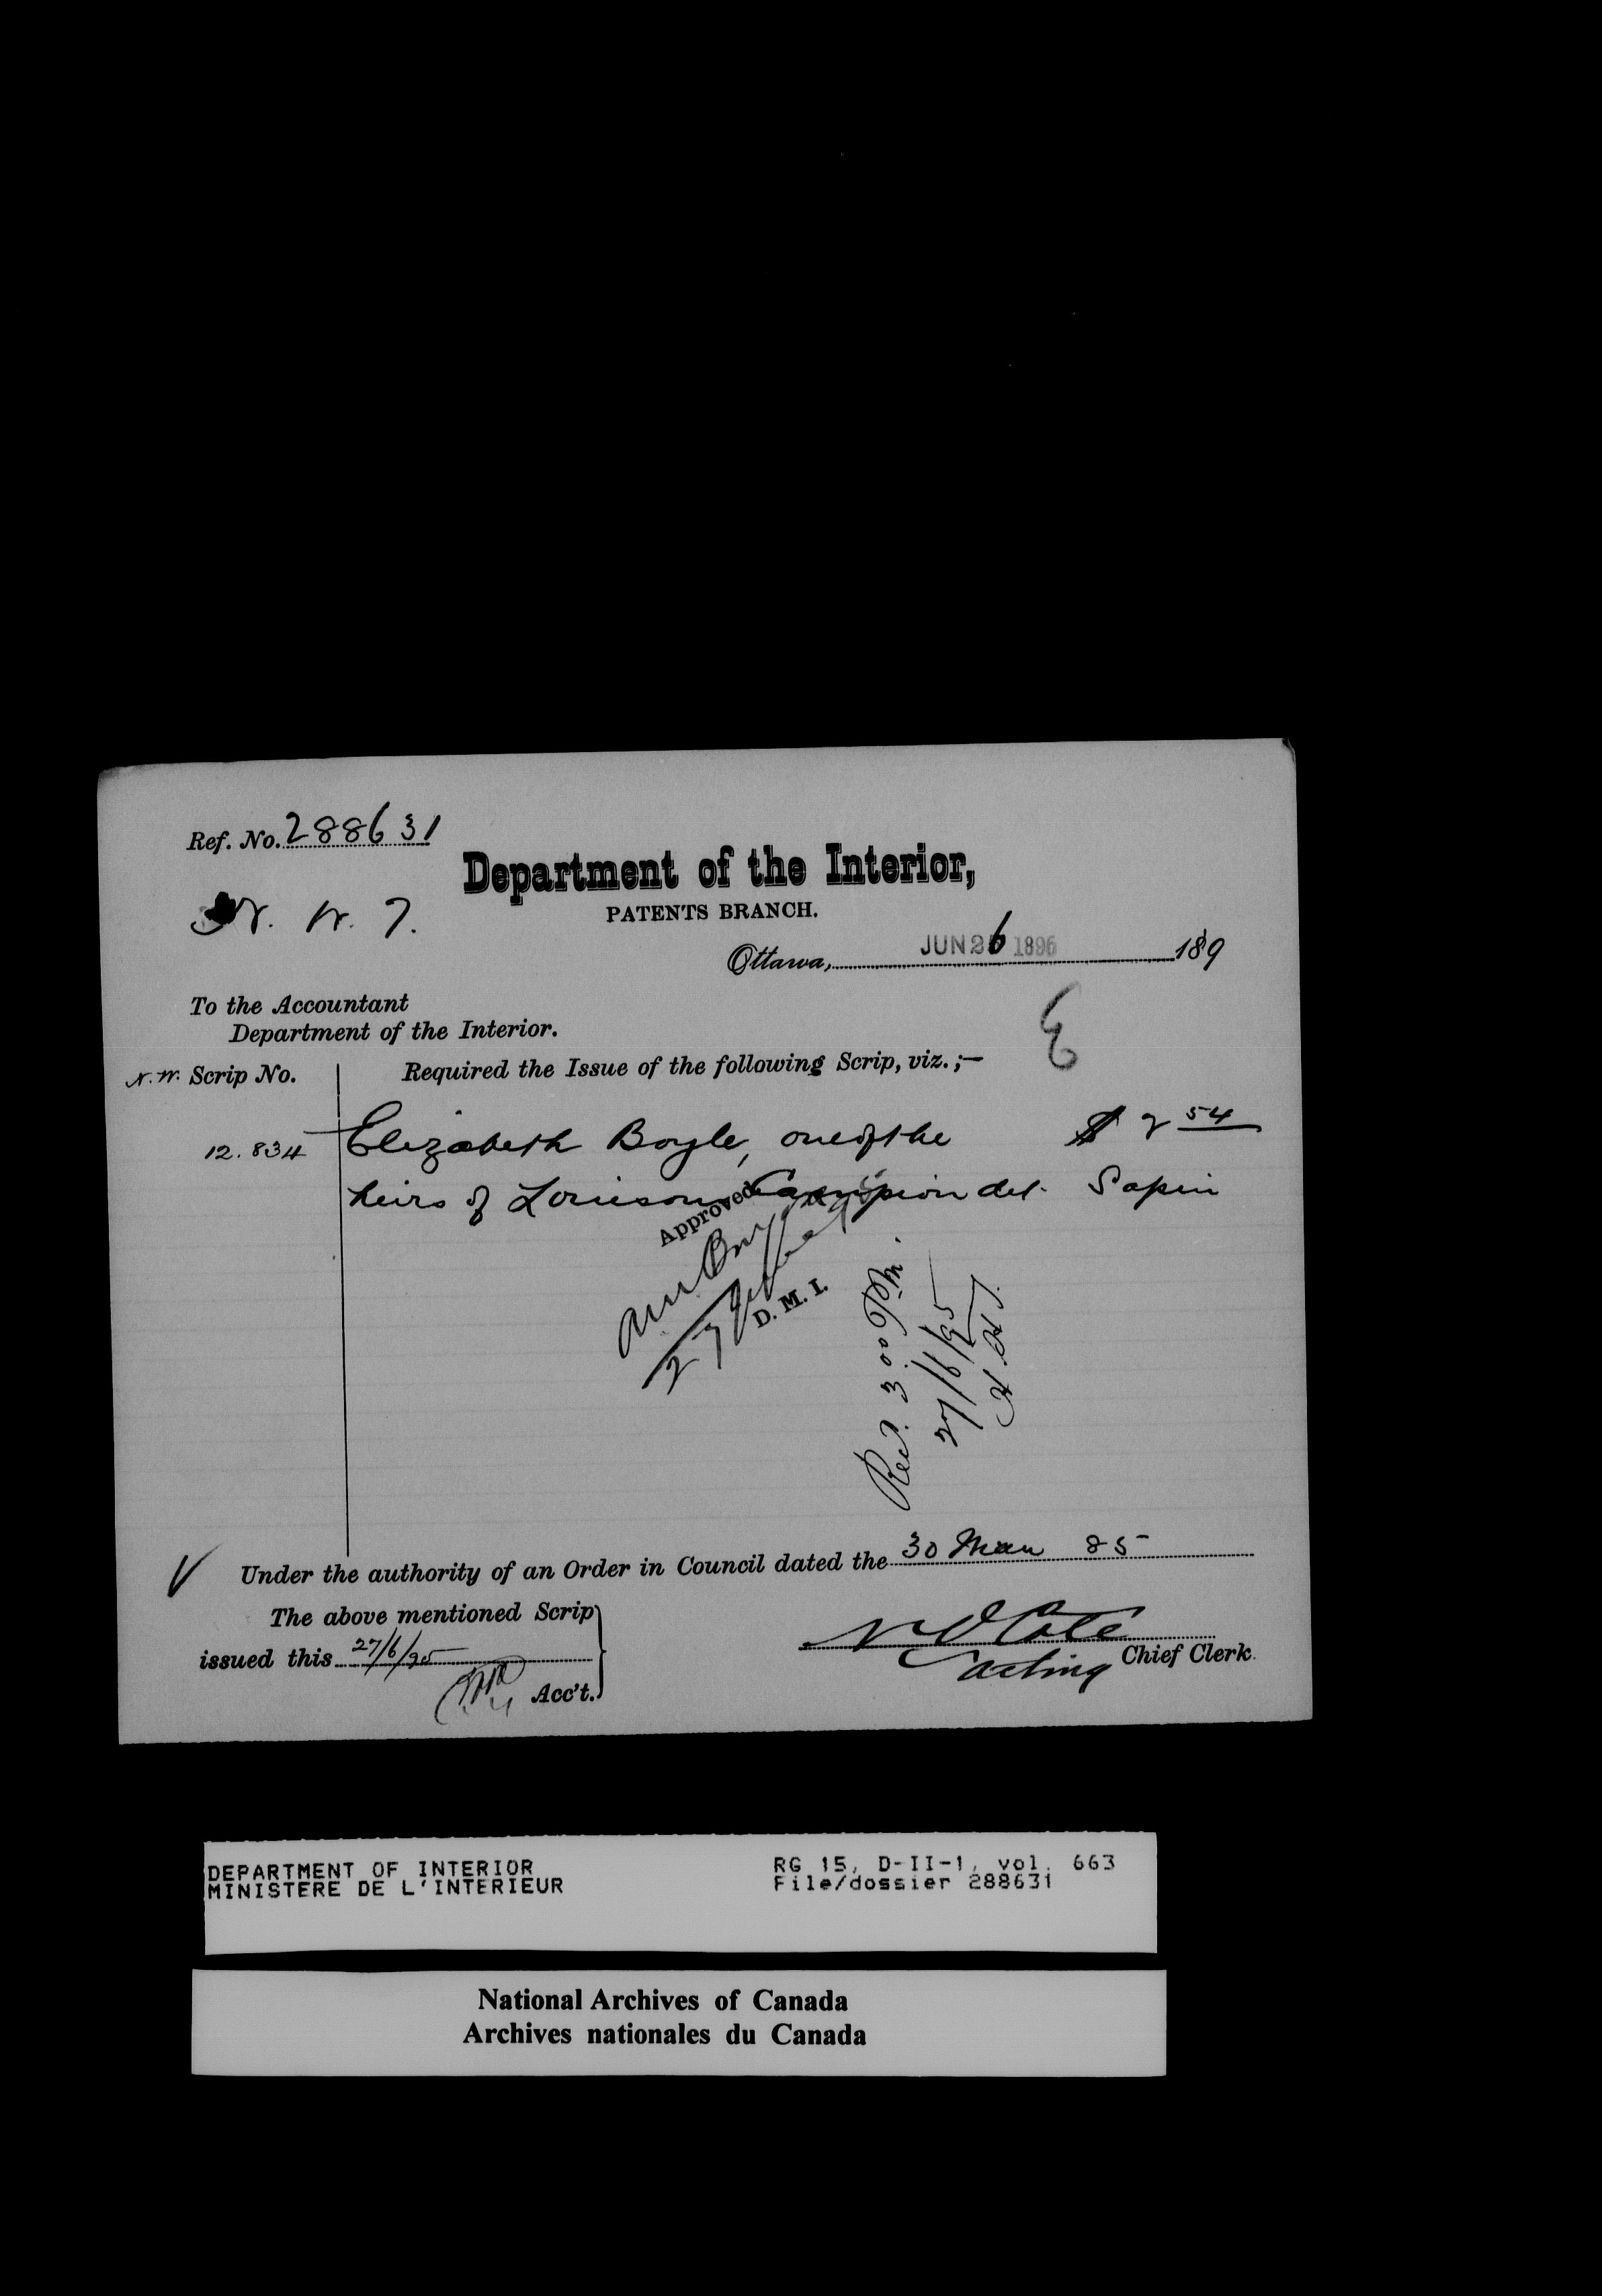 Ref. No. 288631
Department of the Interior,
N. W. T.
PATENTS BRANCH.
Ottawa, JUN 26 1896 189
To the Accountant
Department of the Interior.
N.W. Scrip No.
Required the Issue of the following Scrip, viz.;—
E
12.834 Elizabeth Boyle, one of the $ 2 54
heirs of Louison Campion del. Sapin
Approved
27
D. M. I.
Recd. 3.00 P.M.
27/6/95
Under the authority of an Order in Council dated the 30 Mar 85
The above mentioned Scrip
issued this 27/6/95
Acc't.
N O Cote
acting Chief Clerk.
DEPARTMENT OF INTERIOR
MINISTERE DE L'INTERIEUR
RG 15, D-II-1, vol. 663
File/dossier 288631
National Archives of Canada
Archives nationales du Canada